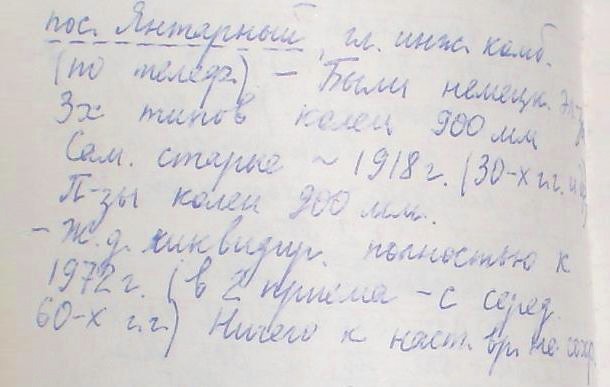 пос. Янтарный, гл. инж. комб.
(по телеф.) – Были немецк. эл-зы
3х типов колеи 900 мм
Сам. старые ~ 1918 г. (30-х г.г.
П-зы колеи 900 мм.
– Ж.д. ликвидир. полностью к
1972 г. (в 2 приема – с серед.
60-х г.г.) Ничего к наст. вр. не сохр.